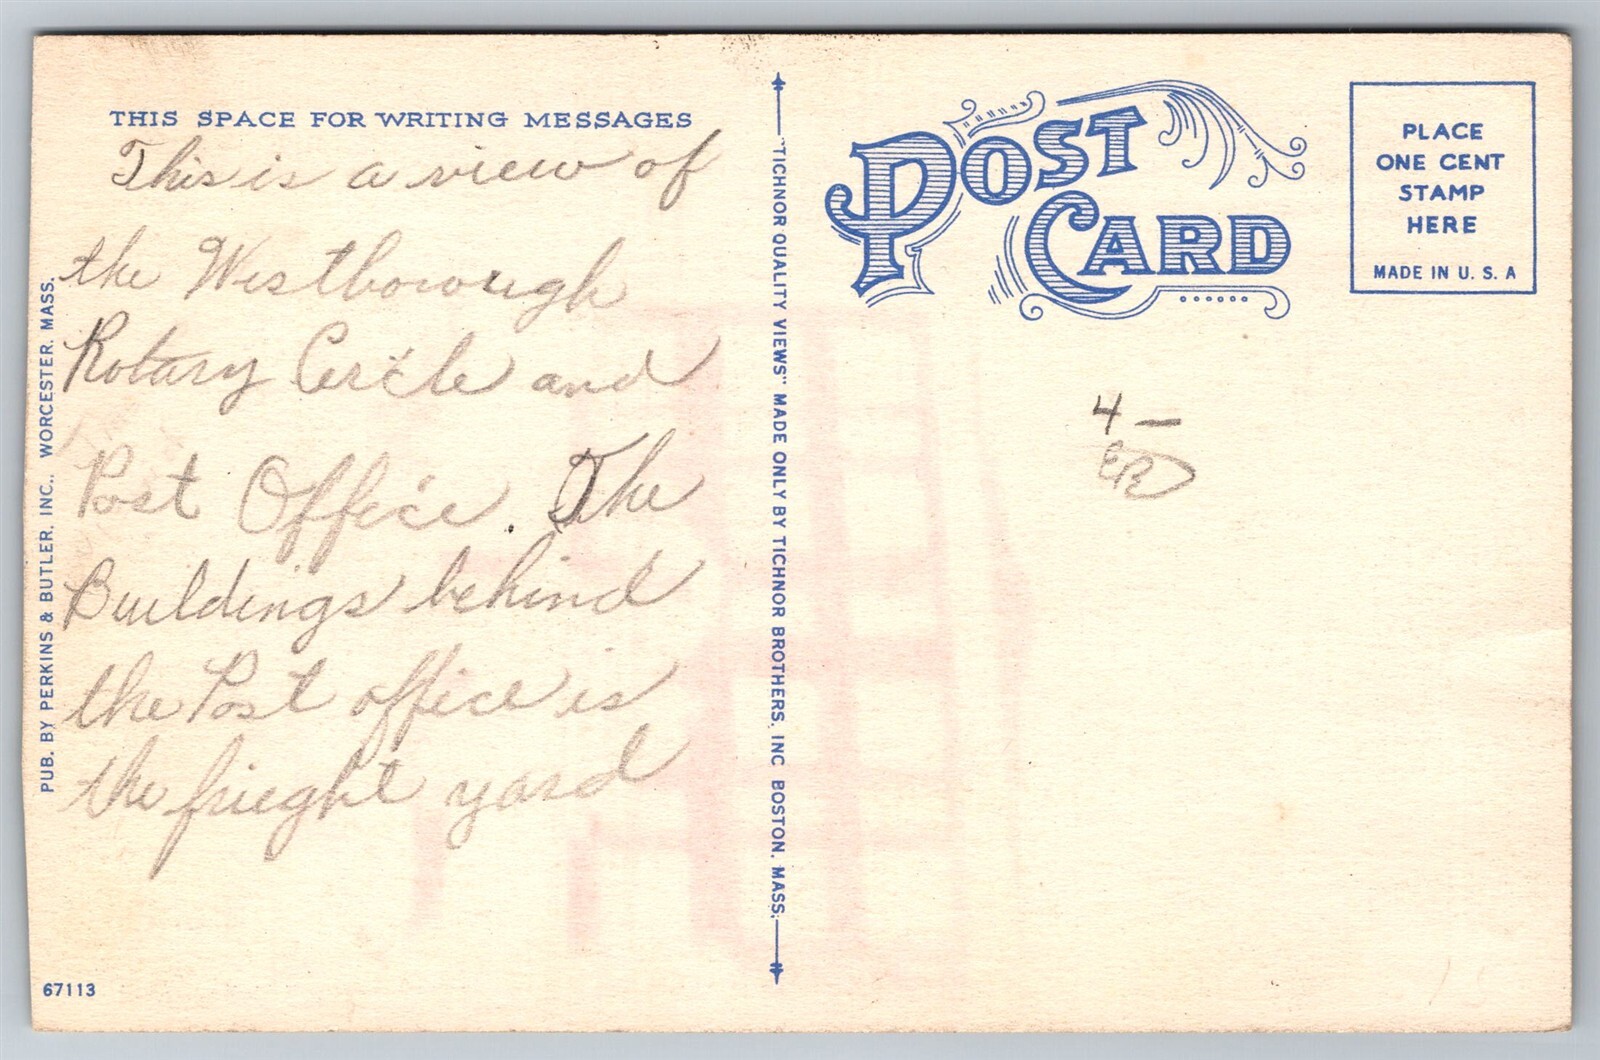 THIS SPACE FOR WRITING MESSAGES
This is a view of
the Westborough
Rotary Circle and
Post Office. The
Buildings behind
the Post office is
the frieght yard
PUB. BY PERKINS & BUTLER, INC., WORCESTER, MASS.
67113
"TICHNOR QUALITY VIEWS" MADE ONLY BY TICHNOR BROTHERS, INC BOSTON, MASS.
POST
CARD
PLACE
ONE CENT
STAMP
HERE
MADE IN U. S. A
4 —